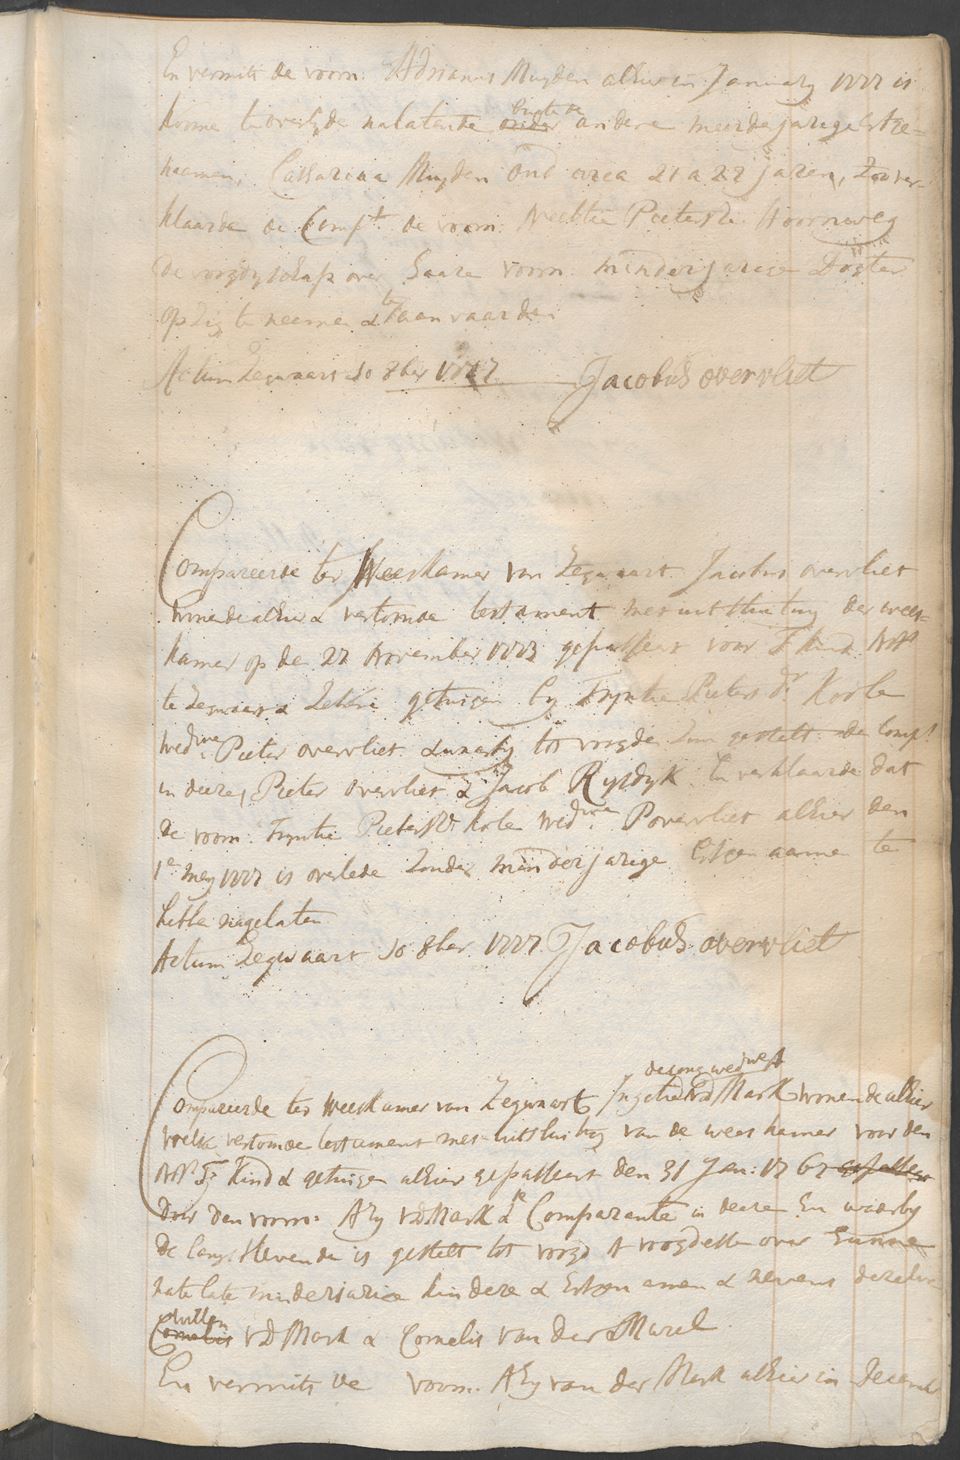 En vermits de voorn: Adrianus Muyden alhier in January 1777 is
kome te overlyde nalatende buyten andere meerderjarige Erfge-
naemen, Catharina Muyden oud circa 21 a 22 jaren, Zoo ver-
klaarde de Compt de voorn: Neeltie Pieterse Hoornweg
de voogdyschap over haare voorn: minderjarige Dogter
op Zig te neemen & te aanvaarden
Actum Zegwaart 10 8ber 1777. Jacobus overvliet
Compareerde ter Weeskamer van Zegwaart Jacobus overvliet
wonende alhier & vertoonde testament met uitsluiting der wees-
kamer op de 22 November 1773 gepasseert voor F Kind Nots
te Zegwaart & Zekere getuigen by Tryntie Pieters dr Kole
Wedwe Pieter overvliet & waarby tot voogde Zyn gestelt de Compt
in deeze, Pieter overvliet & Jacob Rysdyk En verklaarde dat
de voorn: Tryntie Pieters dr Kole Wedwe P overvliet alhier den
1e mey 1777 is overlede Zonder minderjarige Erfgenaamen te
hebbe nagelaten
Actum Zegwaart 10 8ber 1777. Jacobus overvliet
de Jong wedwe A
Compareerde ter Weeskamer van Zegwaart Ingetie vd Mark wonende alhier
welke vertoonde testament met uitsluiting van de weeskamer voor den
Nots F: Kind & getuigen alhier gepasseert den 31 Jan: 1767 gepasseert
door den voorn: Ary vd Mark & de Comparante in deeze En waarby
de langstlevende is gestelt tot voogd of voogdesse over hunne
natelate minderjarige kindere & Erfgenamen & nevens dezelve
Willem
Cornelis vd Mark & Cornelis van der Marel
En vermits de voorn: Ary van der Mark alhier in December